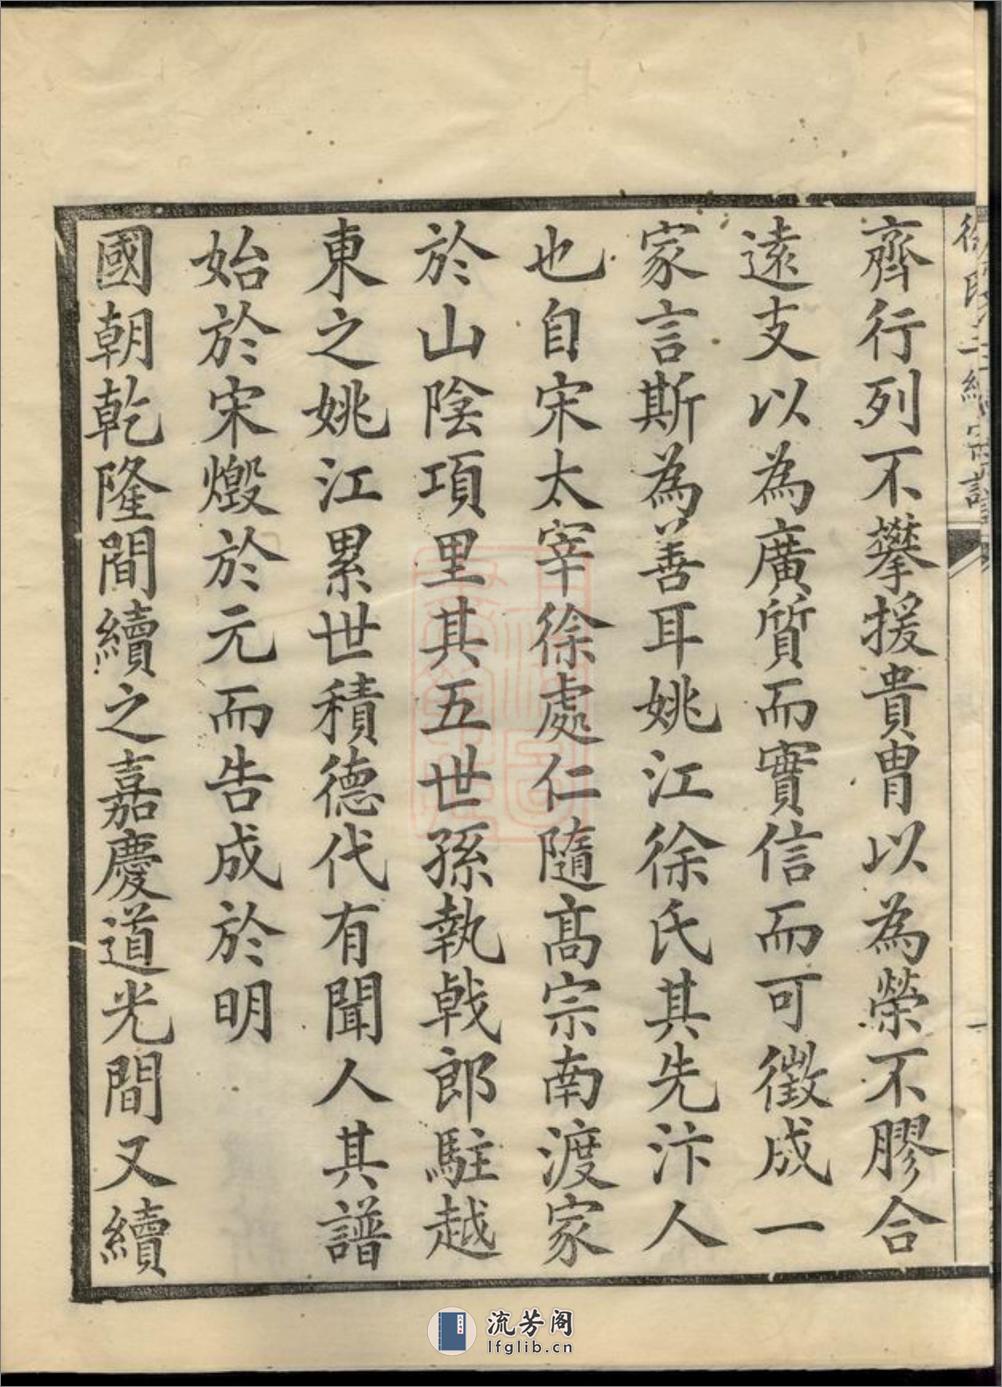 齊行列不攀援貴胄以為榮不膠合
遠支以為廣質而實信而可徵成一
家言斯為善耳姚江徐氏其先汴人
也自宋太宰徐處仁隨高宗南渡家
於山陰項里其五世孫執戟郎駐越
東之姚江累世積德代有聞人其譜
始於宋燬於元而告成於明
國朝乾隆間續之嘉慶道光間又續
流芳阁
lfglib.cn